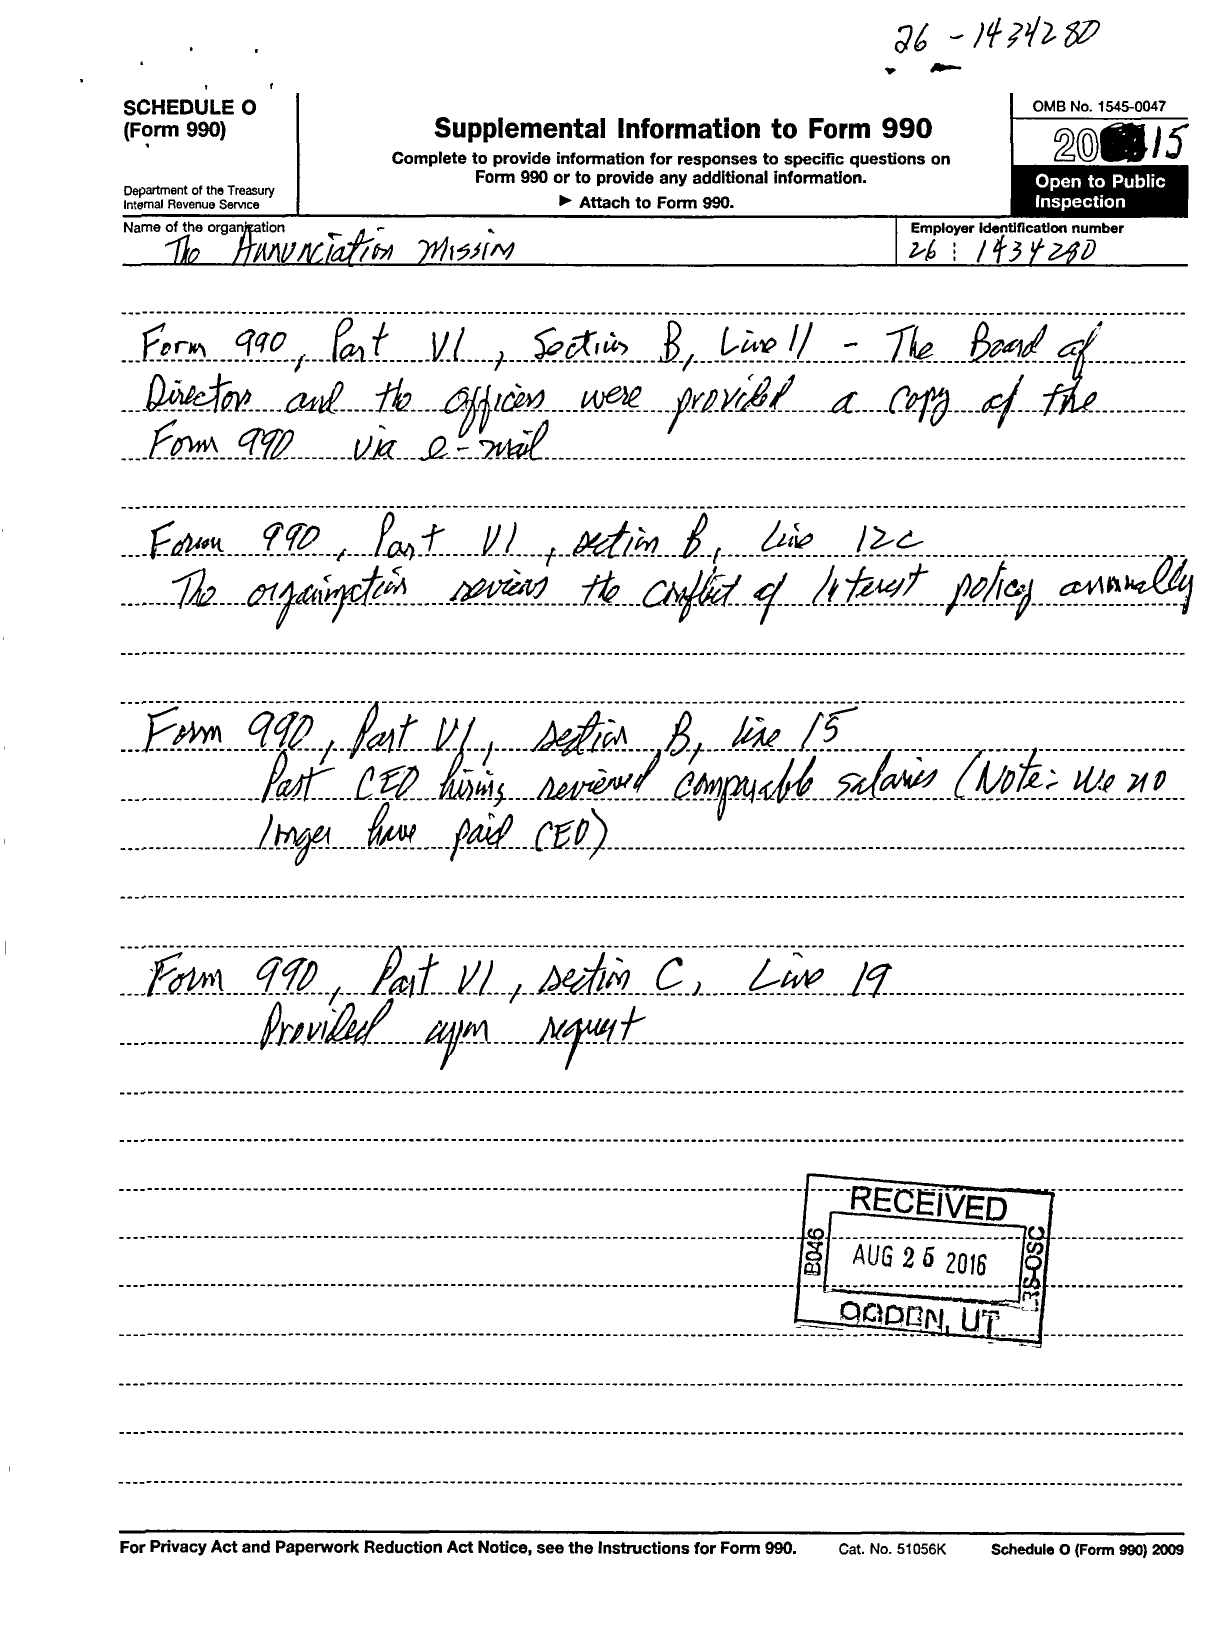 26-1434280
SCHEDULE O
(Form 990)
Department of the Treasury
Internal Revenue Service
Supplemental Information to Form 990
Complete to provide information for responses to specific questions on
Form 990 or to provide any additional information.
► Attach to Form 990.
OMB No. 1545-0047
2015
Open to Public
Inspection
Name of the organization
The Annunciation Mission
Employer identification number
26 1434280
Form 990, Part VI, Section B, Line 11 - The Board of
Directors and the officers were provided a copy of the
Form 990 via e-mail
Form 990, Part VI, section B, Line 12c
The organization reviews the conflict of Interest policy annually
Form 990, Part VI, section B, line 15
Past CEO hiring reviewed comparable salaries (Note: we no
longer have paid CEO)
Form 990, Part VI, section C, Line 19
Provided upon request
RECEIVED
B046
AUG 26 2016
IRS-OSC
OGDEN, UT
For Privacy Act and Paperwork Reduction Act Notice, see the Instructions for Form 990. Cat. No. 51056K Schedule O (Form 990) 2009